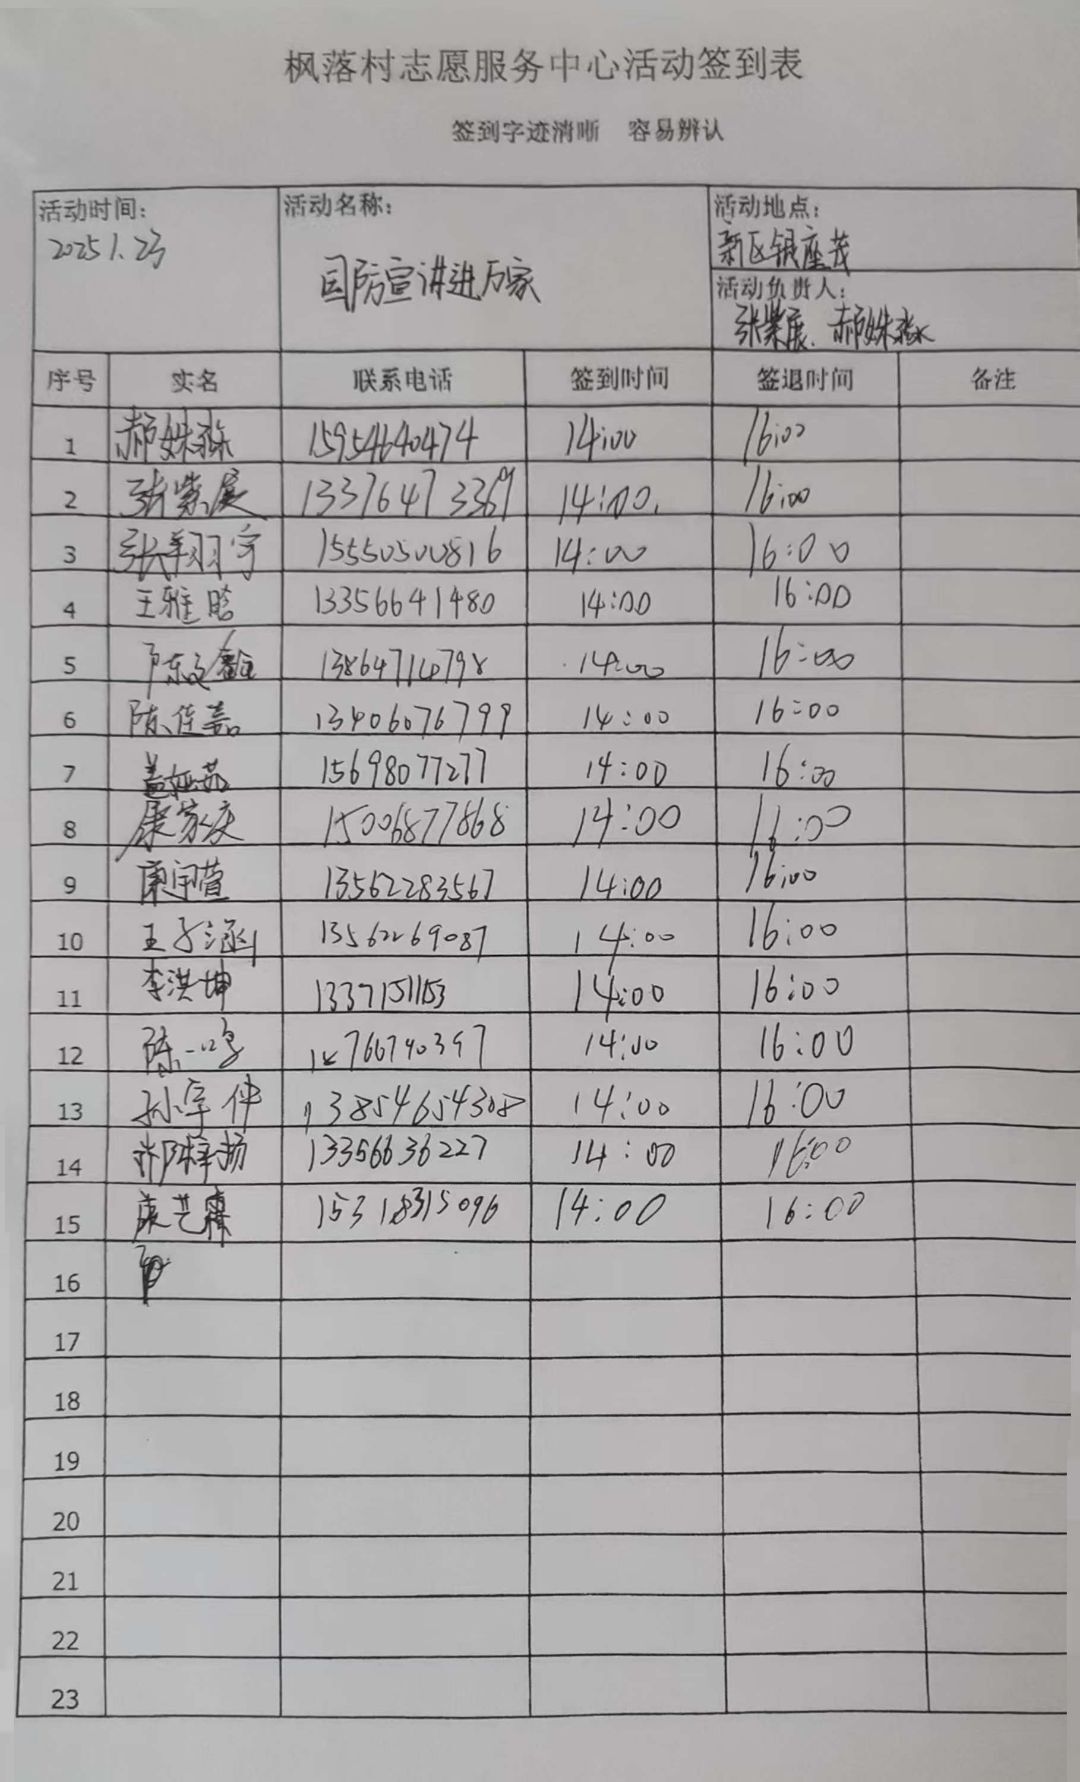 枫落村志愿服务中心活动签到表
签到字迹清晰 容易辨认
活动时间: 活动名称: 活动地点:
2025 1.23 国防宣讲进万家 新区银座茂
活动负责人:
张紫展、郝姝淼
序号 实名 联系电话 签到时间 签退时间 备注
1 郝姝淼 15954640474 14:00 16:00
2 张紫展 13376473369 14:00. 16:00
3 张翔宇 15550500816 14:00 16:00
4 王雅晗 13356641480 14:00 16:00
5 陈文鑫 13864714798 14:00 16:00
6 陈佳嘉 13406076799 14:00 16:00
7 盖娅茹 15698077277 14:00 16:00
8 康家庆 15006877868 14:00 16:00
9 康宇萱 13562283567 14:00 16:00
10 王子涵 13562269087 14:00 16:00
11 李洪坤 1337151153 14:00 16:00
12 陈一鸣 766790397 14:00 16:00
13 孙宇仲 13854654308 14:00 16:00
14 梓扬 13356636227 14:00 16:00
15 康艺霖 15318315096 14:00 16:00
16
17
18
19
20
21
22
23